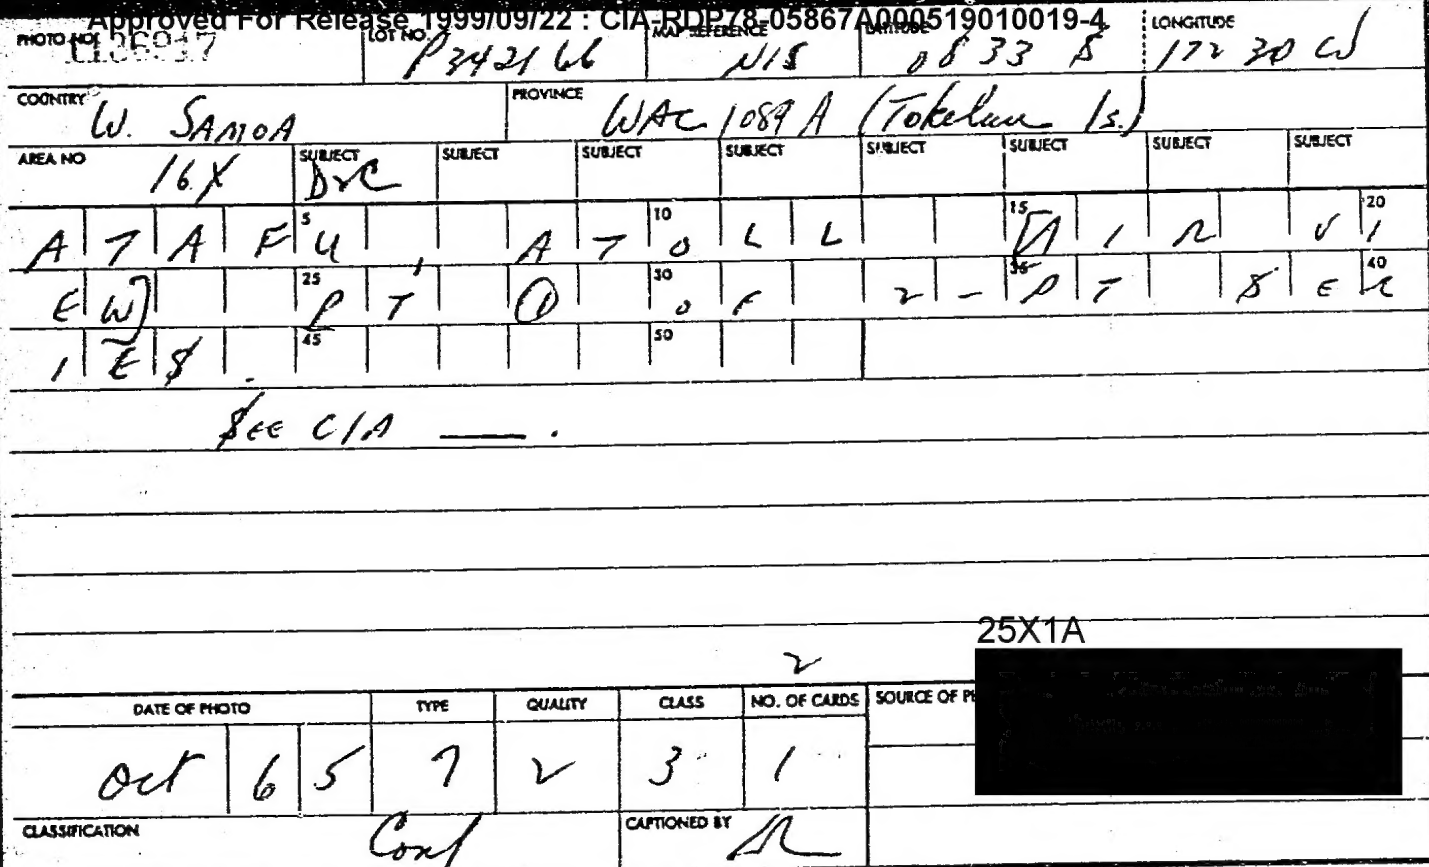 Approved For Release 1999/09/22 : CIA-RDP78-05867A000519010019-4
PHOTO NO. LOT NO. P342166 MAP REFERENCE NIS LATITUDE 0833 S LONGITUDE 172 30 W
COUNTRY W. SAMOA PROVINCE WAC 1089 A (Tokelau Is.)
AREA NO 16X SUBJECT SUBJECT SUBJECT SUBJECT SUBJECT SUBJECT SUBJECT SUBJECT
5 10 15 20
ATAFU, ATOLL [AIR VI
25 30 35 40
EW] PT ① OF 2-PT SER
45 50
IES.
SEE CIA ___.
25X1A
2
DATE OF PHOTO TYPE QUALITY CLASS NO. OF CARDS SOURCE OF
Oct 6 5 7 2 3 1
CLASSIFICATION Conf CAPTIONED BY